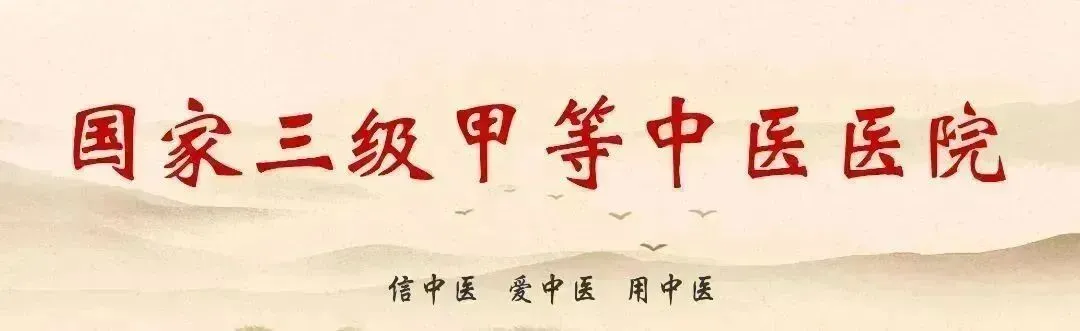 国家三级甲等中医医院
信中医 爱中医 用中医